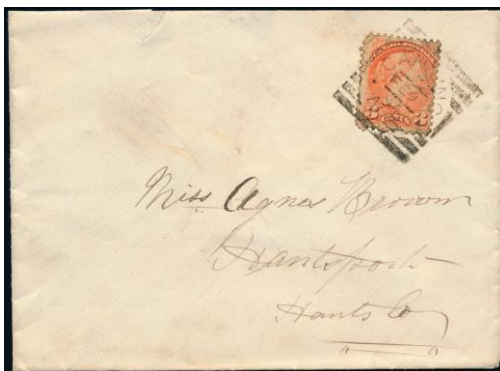 CANNING
Miss Agnes Brown
Hantsport
Hants Co